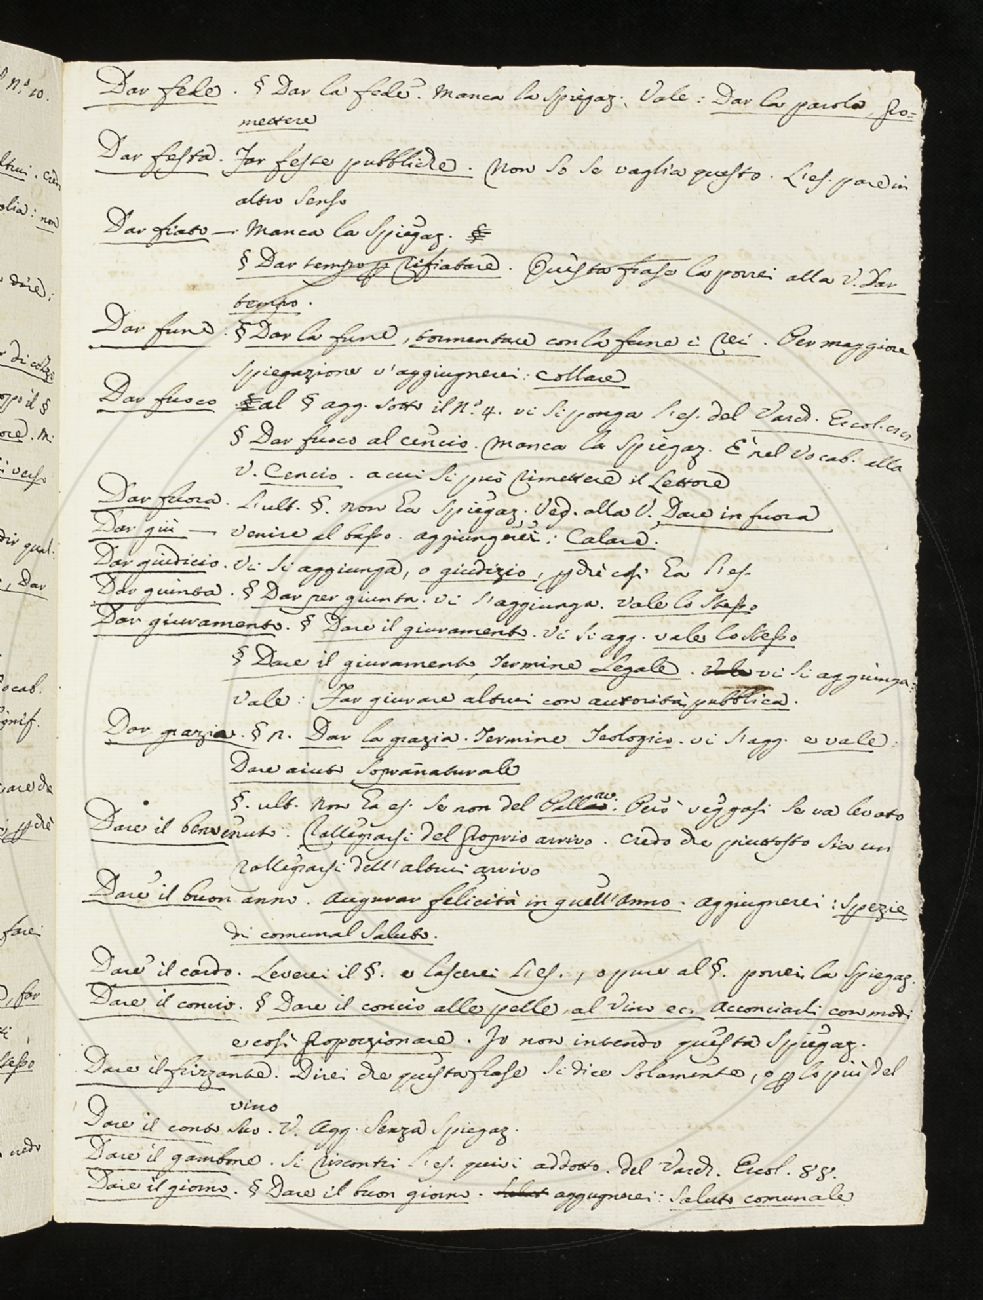 Dar fede. § Dar la fede. Manca la Spiegaz. Vale: Dar la parola, pro=
mettere
Dar festa. Far feste pubbliche. Non so se vaglia questo. L'es. pare in
altro senso
Dar fiato —. Manca la Spiegaz. §
§ Dar tempo p rifiatare. Questa frase la porrei alla V. Dar
tempo.
Dar fune. § Dar la fune, tormentare con la fune i rei. Per maggiore
Spiegazione v'aggiugnerei: Collare
Dar fuoco § al § agg. sotto il N.º 4. vi si ponga l'es. del Varch. Ercol.
§ Dar fuoco al cencio. Manca la Spiegaz. È nel Vocab. alla
V. Cencio. a cui si può rimettere il Lettore
Dar fuora. L'ult. §. non ha Spiegaz. Ved. alla V. Dare in fuora
Dar giù — venire al basso. aggiungerei: Calare.
Dar giudicio. Vi si aggiunga, o giudizio, pchè così ha l'es.
Dar giunta. § Dar per giunta. vi s'aggiunga. vale lo stesso
Dar giuramento. § Dare il giuramento. vi si agg. vale lo stesso
§ Dare il giuramento, Termine Legale. Vale vi si aggiunga:
vale: Far giurare altrui con autorità pubblica.
Dar grazia. § n. Dar la grazia. Termine Teologico. vi s'agg. e vale:
Dare aiuto Sopranaturale
§. ult. Non ha es. se non del Però veggasi se va levato
Dare il benvenuto. Rallegrarsi del proprio arrivo. credo che piuttosto sia un
rallegrarsi dell'altrui arrivo
Dare il buon anno. Augurar felicità in quell'anno. aggiugnerei: Spezie
di comunal saluto.
Dare il cardo. Leverei il §. e lascerei l'es., oppure al §. porrei la Spiegaz.
Dare il concio. § Dare il concio alle pelle, al vino ec. Acconciarli con modi
e così proporzionare. Io non intendo questa Spiegaz.
Dare il frizzante. Direi che questa frase si dice solamente, o p lo più del
vino
Dare il conto suo. V. Agg. senza Spiegaz.
Dare il gambone. Si riscontri l'es. quivi addotto. del Varch. Ercol. 88.
Dare il giorno. § Dare il buon giorno. Salut aggiugnerei: Saluto comunale